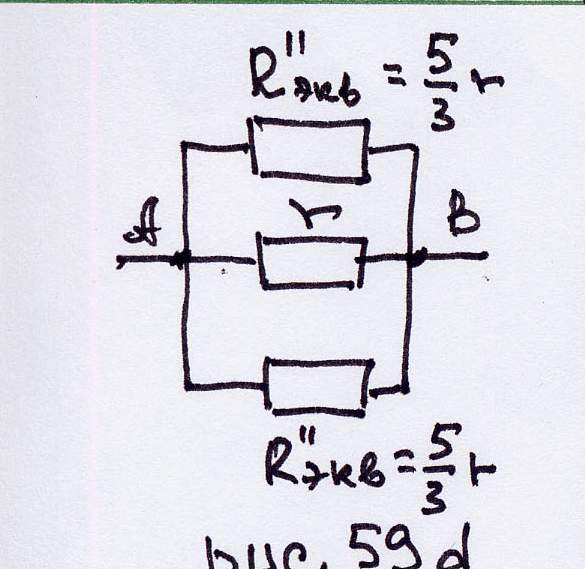 R"экв = 5/3 r
r
A B
R"экв = 5/3 r
рис. 59д